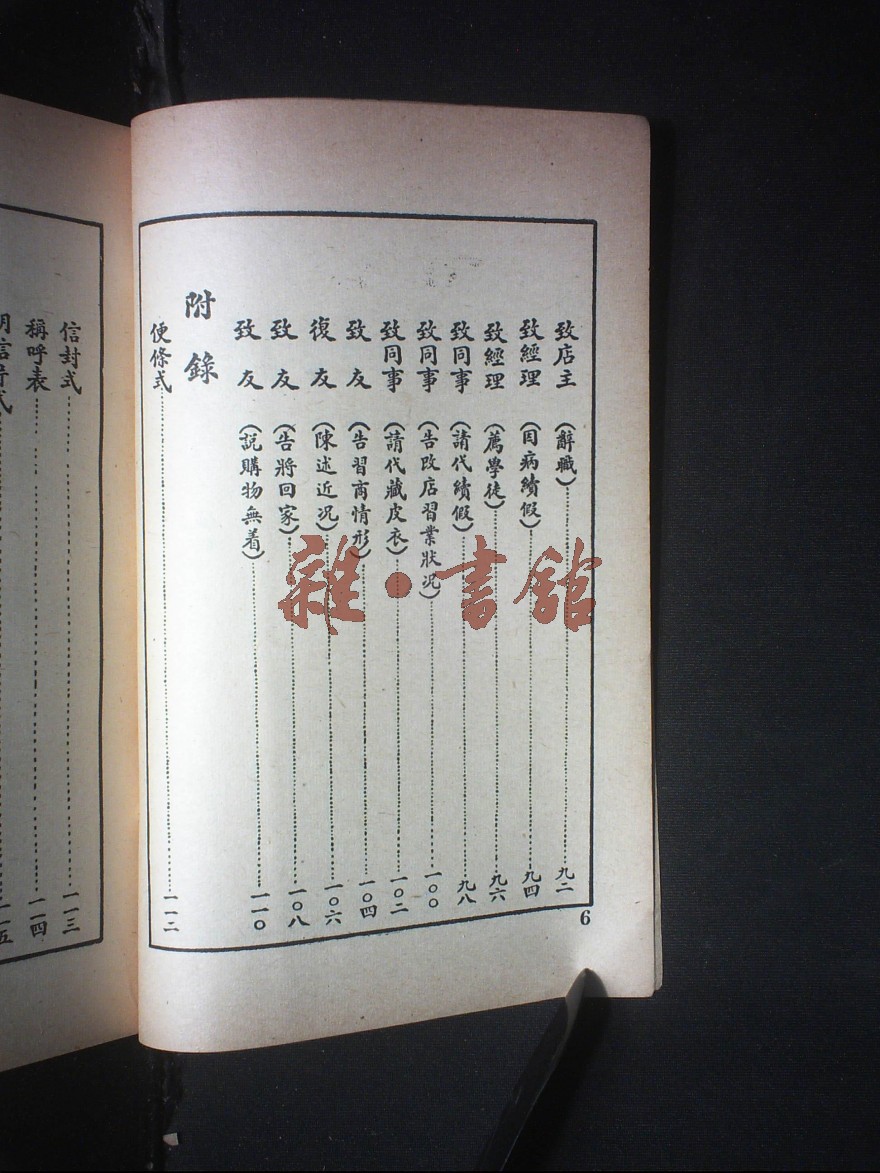 致店主（辭職）⋯⋯九二
致經理（因病續假）⋯⋯九四
致經理（薦學徒）⋯⋯九六
致同事（請代續假）⋯⋯九八
致同事（告改店習業狀况）⋯⋯一〇〇
致同事（請代藏皮衣）⋯⋯一〇二
致友（告習商情形）⋯⋯一〇四
復友（陳述近况）⋯⋯一〇六
致友（告將回家）⋯⋯一〇八
致友（説購物無着）⋯⋯一一〇
附錄
便條式⋯⋯一一二
6
信封式⋯⋯一一三
稱呼表⋯⋯一一四
明信片式⋯⋯一一五
雜·書館